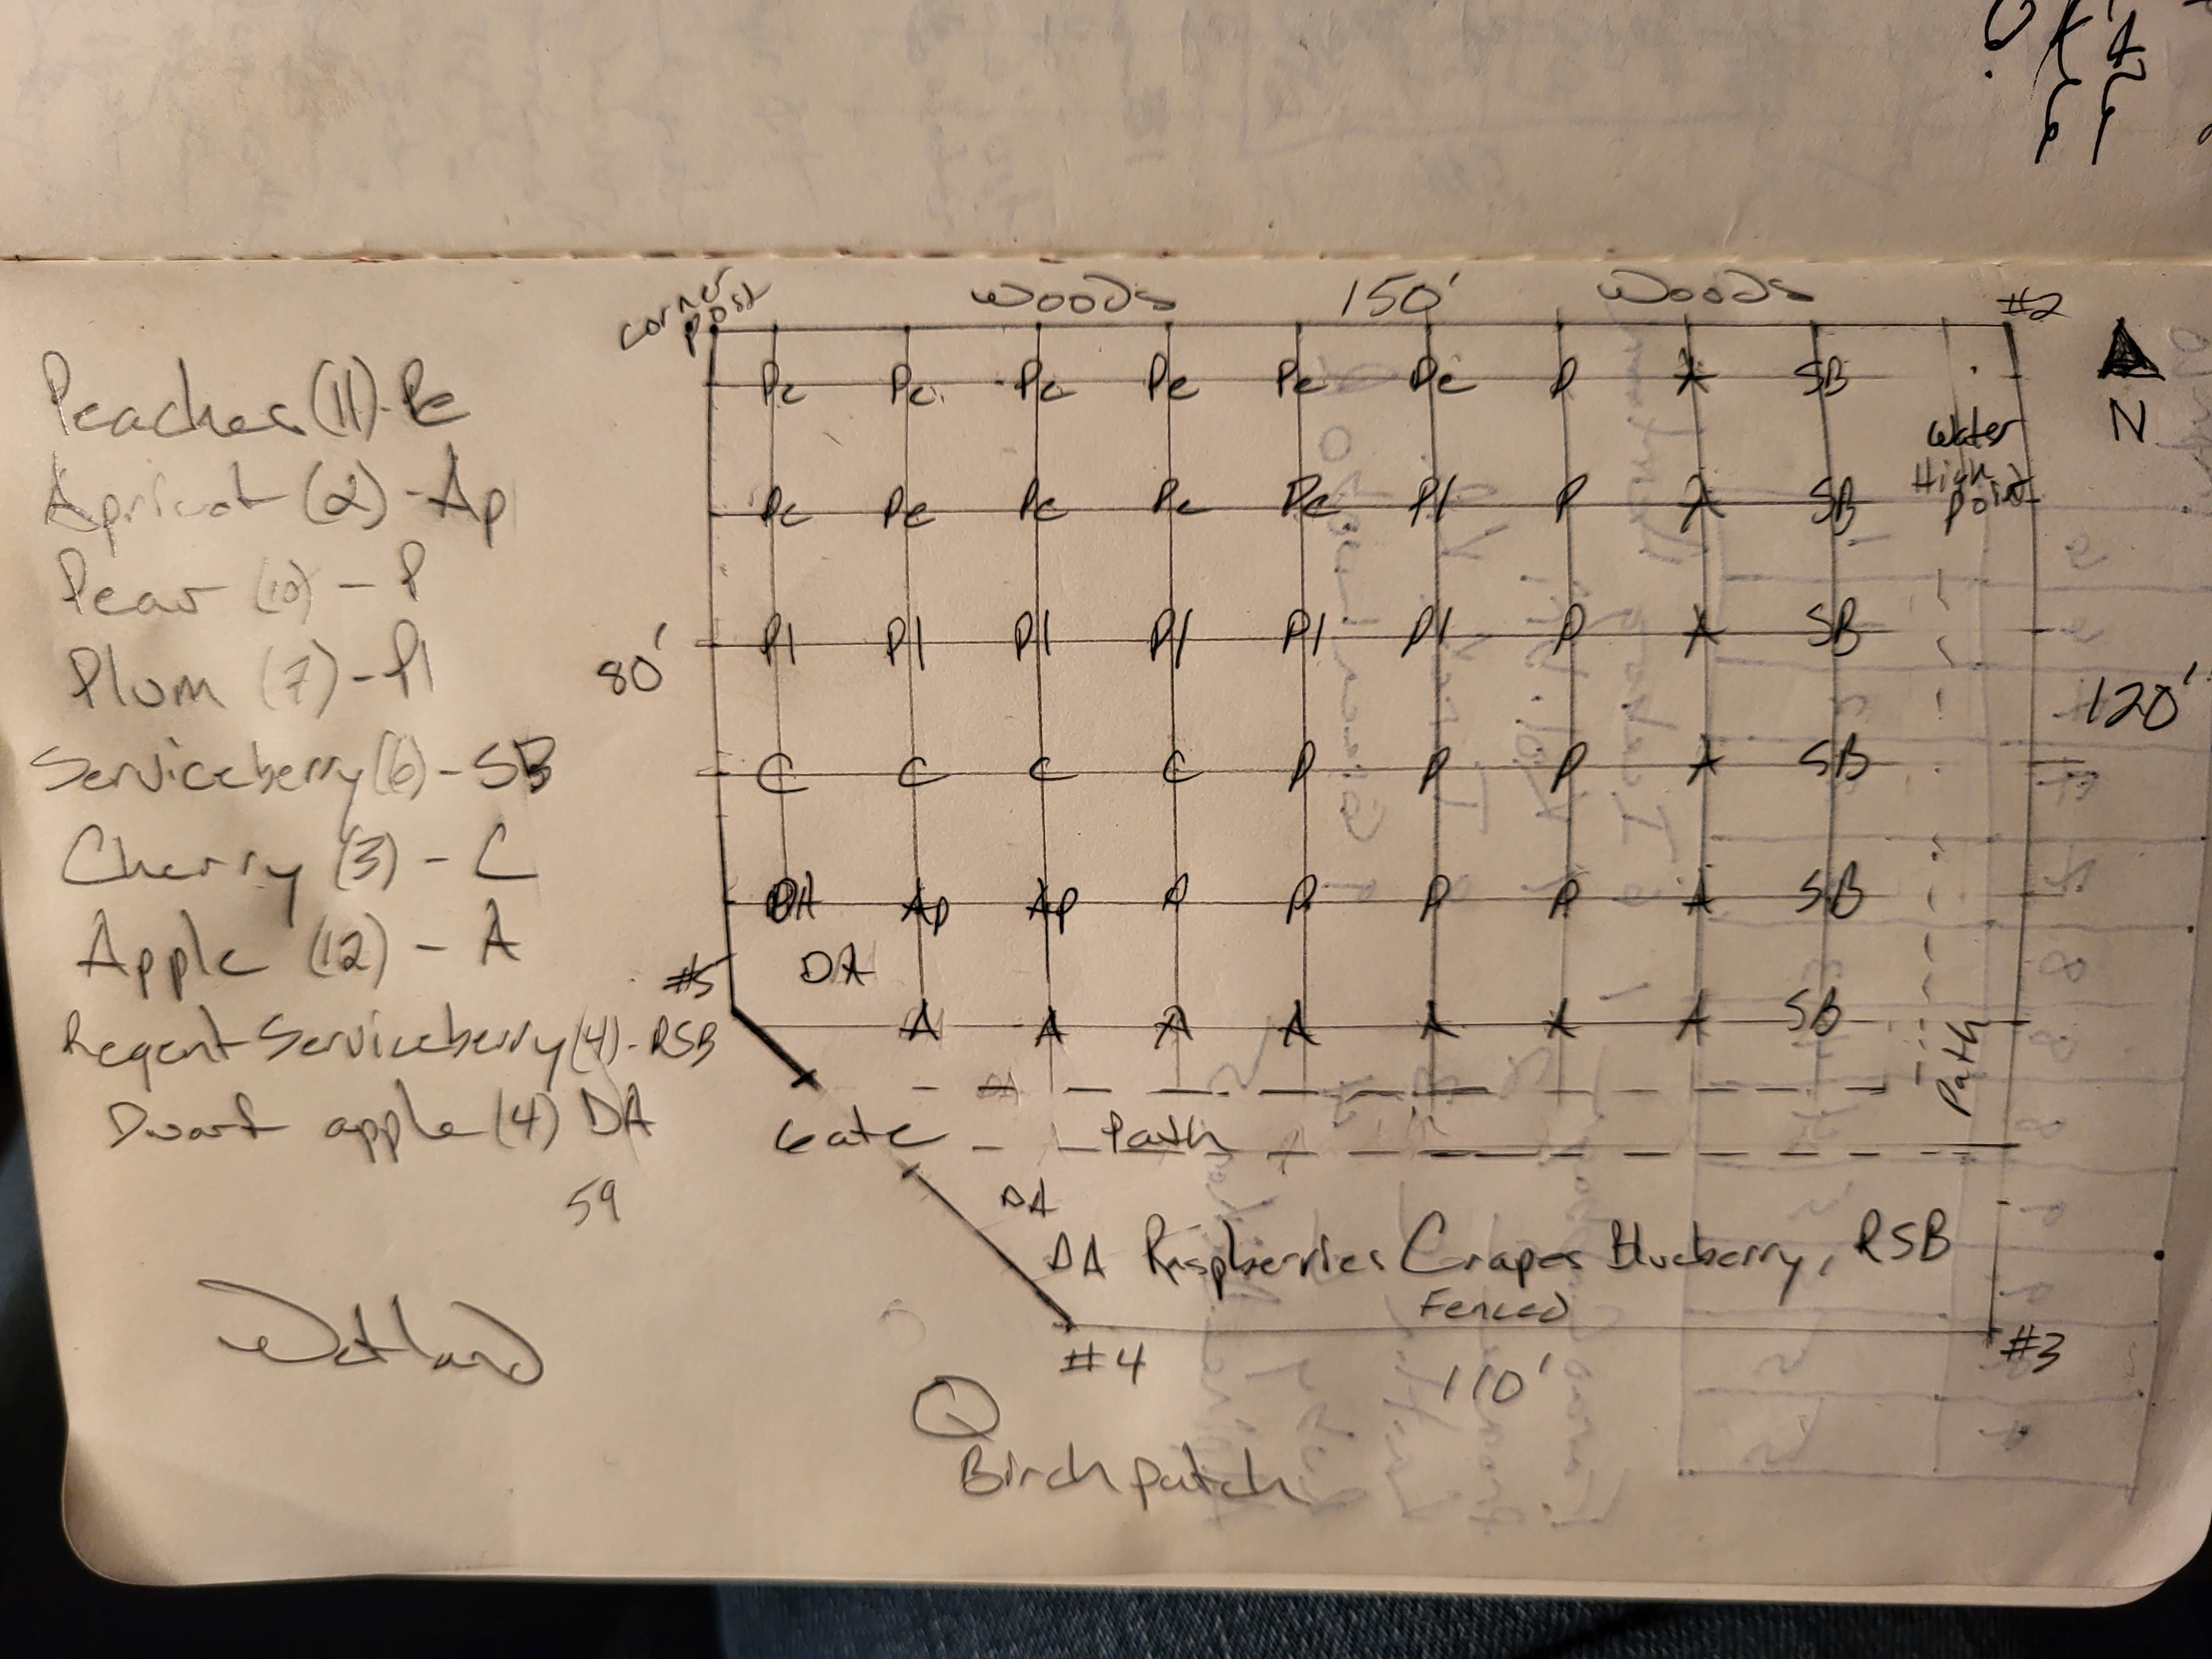 corner post
Woods 150' Woods
#2
N
Peaches (11) - Pe
Apricot (2) - Ap
Pear (10) - P
Plum (7) - Pl
Serviceberry (6) - SB
Cherry (3) - C
Apple (12) - A
Regent Serviceberry (4) - RSB
Dwarf apple (4) DA
59
Pe Pe Pe Pe Pe Pe P A SB
Water High Point
Pe Pe Pe Pe Pe Pl P A SB
Pl Pl Pl Pl Pl Pl P A SB
80'
120'
C C C C P P P A SB
DA Ap Ap P P P P A SB
#5
DA
A A A A A A A SB
Path
Gate Path
DA
DA Raspberries Grapes Blueberry, RSB
Fenced
#4
110'
#3
Wetland
Birch patch